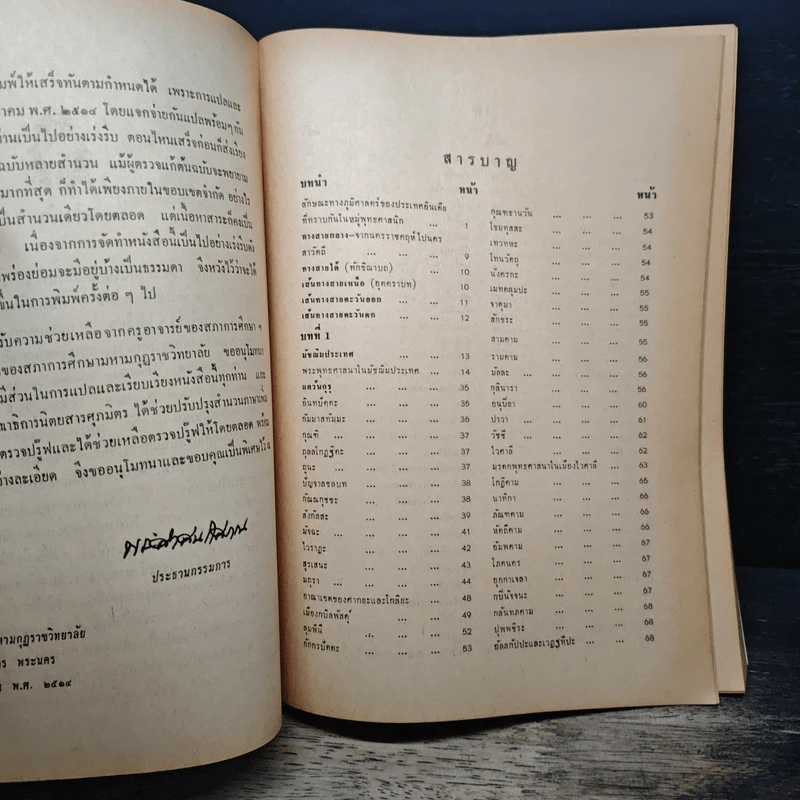 มพ์ให้เสร็จทันตามกำหนดได้ เพราะการแปลและ
าคม พ.ศ. ๒๕๑๔ โดยแจกจ่ายกันแปลพร้อมๆ กัน
านเป็นไปอย่างเร่งรีบ ตอนไหนเสร็จก่อนก็ส่งเรียง
ฉบับหลายสำนวน แม้ผู้ตรวจแก้ต้นฉบับจะพยายาม
มากที่สุด ก็ทำได้เพียงภายในขอบเขตจำกัด อย่างไร
ป็นสำนวนเดียวโดยตลอด แต่เนื้อหาสาระก็คงเป็น
เนื่องจากการจัดทำหนังสือนี้เป็นไปอย่างเร่งรีบดัง
พร่องย่อมจะมีอยู่บ้างเป็นธรรมดา จึงหวังไว้ว่าจะได้
ขึ้นในการพิมพ์ครั้งต่อ ๆ ไป
รับความช่วยเหลือจากครูอาจารย์ของสภาการศึกษา ฯ
ของสภาการศึกษามหามกุฎราชวิทยาลัย ขออนุโมทนา
มีส่วนในการแปลและเรียบเรียงหนังสือนี้ทุกท่าน และ
ณาธิการนิตยสารศุภมิตร ได้ช่วยปรับปรุงสำนวนภาษาแห่ง
ตรวจปรู๊ฟและได้ช่วยเหลือตรวจปรู๊ฟให้โดยตลอด พร้อม
ย่างละเอียด จึงขออนุโมทนาและขอบคุณเป็นพิเศษไว้ ณ
ประธานกรรมการ
หามกุฎราชวิทยาลัย
ร พระนคร
พ.ศ. ๒๕๑๔
สารบาญ
บทนำ หน้า
ลักษณะทางภูมิศาสตร์ของประเทศอินเดีย
ที่ทราบกันในหมู่พุทธศาสนิก ... 1
ทางสายกลาง—จากนครราชคฤห์ไปนคร
สาวัตถี ... ... 9
ทางสายใต้ (ทักขิณาบถ) ... 10
เส้นทางสายเหนือ (อุตตราบท) ... 10
เส้นทางสายตะวันออก ... 11
เส้นทางสายตะวันตก ... 12
บทที่ 1
มัชฌิมประเทศ ... ... 13
พระพุทธศาสนาในมัชฌิมประเทศ ... 14
แคว้นกุรุ ... ... 35
อินทปัตตะ ... ... 36
กัมมาสทัมมะ ... ... 37
กุณฑิ ... ... ... 37
ถุลลโกฏฐิตะ ... ... 37
ถูนะ ... ... ... 37
ปัญจาลชลบท ... ... 38
กัณณกุชชะ ... ... 38
สังกัสสะ ... ... 39
มัจฉะ ... ... ... 41
ไวราฏะ ... ... 42
สุรเสนะ ... ... 43
มถุรา ... ... ... 44
อาณาเขตของศากยะและโกลิยะ ... 48
เมืองกบิลพัสดุ์ ... ... 49
ลุมพินี ... ... 52
ภัททรปัตตะ ... ... 53
หน้า
กุณฑธานวัน ... ... ... 53
โขมทุสสะ ... ... ... 54
เทวทหะ ... ... ... 54
โทนวัตถุ ... ... ... 54
นังครกะ ... ... ... 54
เมทฬุมปะ ... ... ... 55
จาตุมา ... ... ... 55
สักขระ ... ... ... 55
สามคาม ... ... ... 55
รามคาม ... ... ... 56
มัลละ ... ... ... 56
กุสินารา ... ... ... 56
อนุปิยา ... ... ... 60
ปาวา ... ... ... 61
วัชชี ... ... ... 62
ไวศาลี ... ... ... 62
มรดกพุทธศาสนาในเมืองไวศาลี ... 63
โกฏิคาม ... ... ... 65
นาทิกา ... ... ... 66
ภัณฑคาม ... ... ... 66
หัตถีคาม ... ... ... 66
อัมพคาม ... ... ... 67
โภคนคร ... ... ... 67
อุกกาเจลา ... ... ... 67
กปินัจจนะ ... ... ... 67
กลันทคาม ... ... ... 68
ปุพพชิระ ... ... ... 68
อัลลกัปปะและเวฏฐทีปะ ... ... ... 68